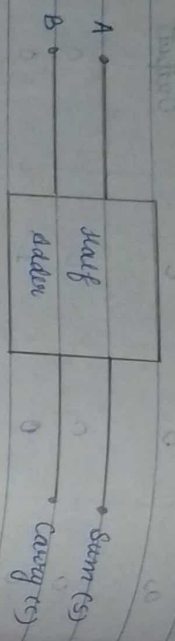 A
B
Half
Adder
Sum (S)
Carry (C)